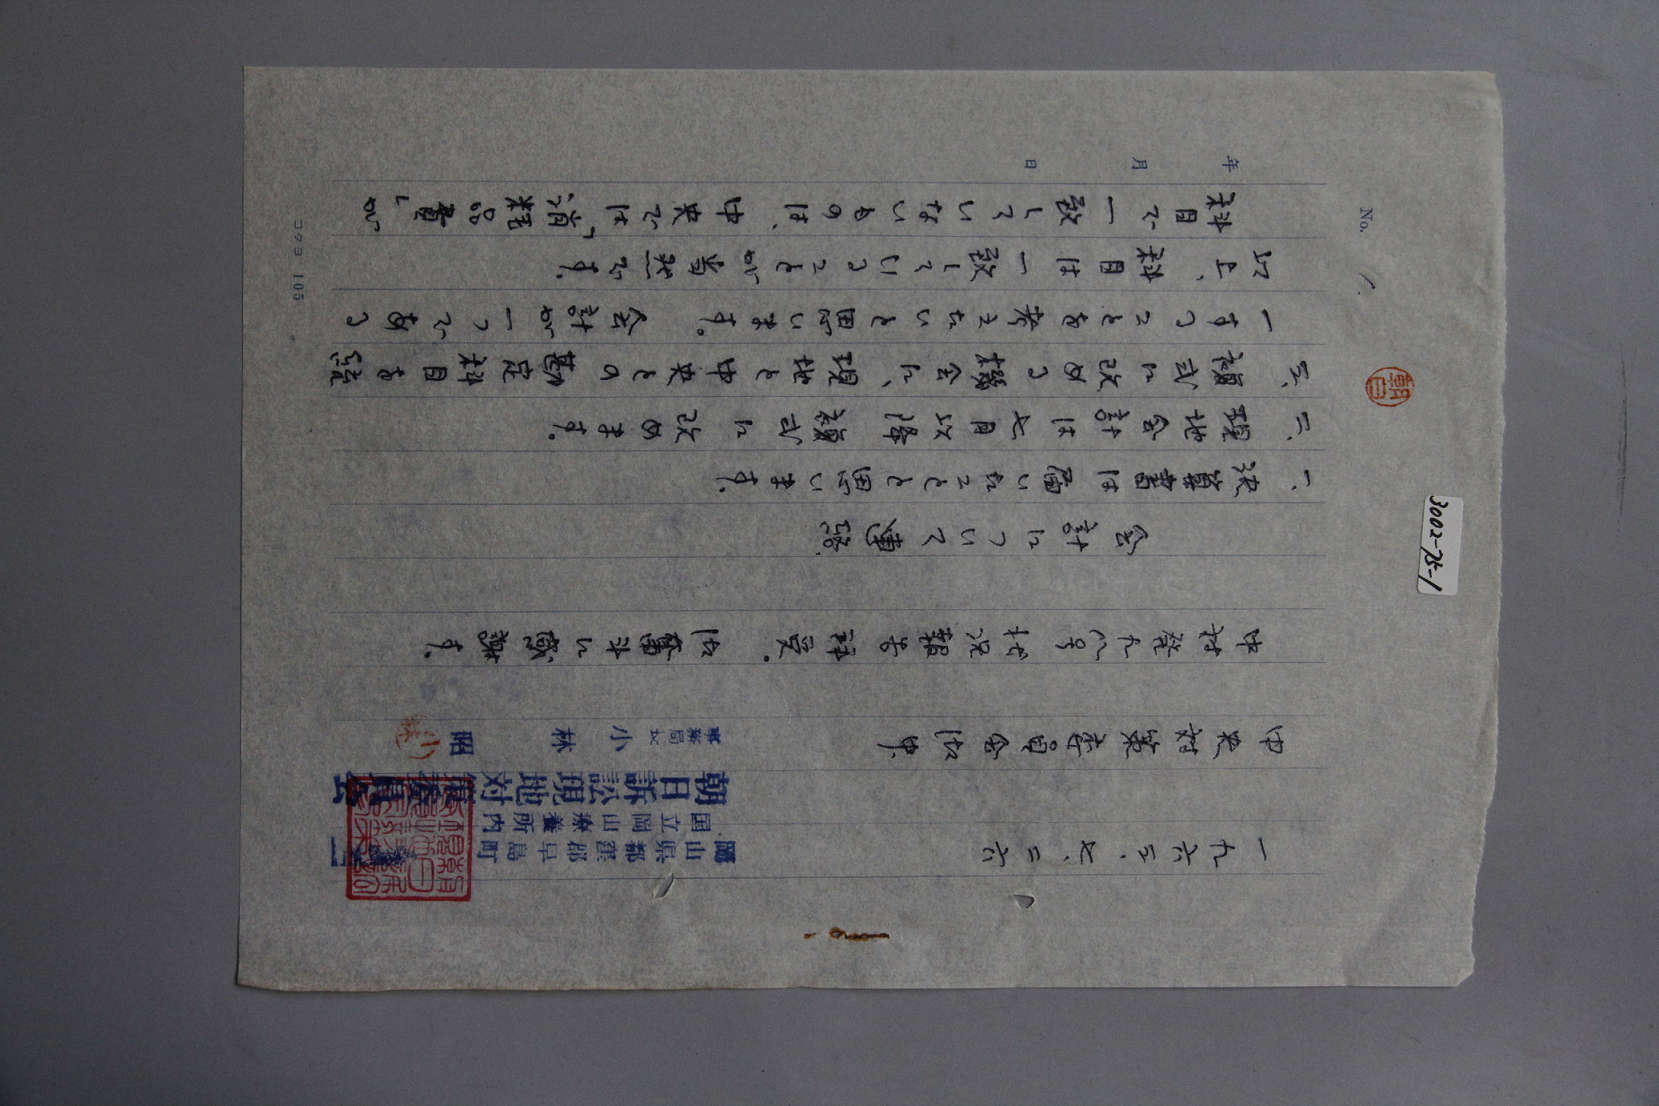 3002-75-1
No. 1.
年 月 日
朝日
一九六三、七、二六
岡山県都窪郡早島町
国立岡山療養所内
朝日訴訟現地対策委員会
事務局長 小林 昭
小林
中央対策委員会 御中
中対発九八号 状況報告拝受。御奮斗に感謝す。
会計について連絡
一、決算書は届いたことと思います。
二、現地会計は七月以降 複式に改めます。
三、複式に改める機会に、現地と中央との勘定科目を統
一することを考えたいと思います。 会計が一つである
以上、科目は一致していることが當然です。
科目で一致していないものは、中央では「消耗品費」が
コクヨ 105